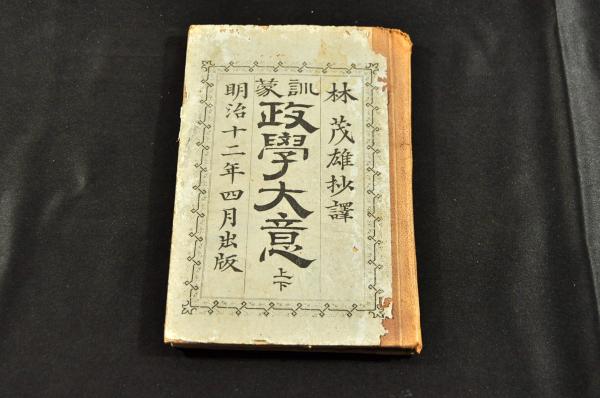 林茂雄抄譯
訓蒙
政學大意
上下
明治十二年四月出版